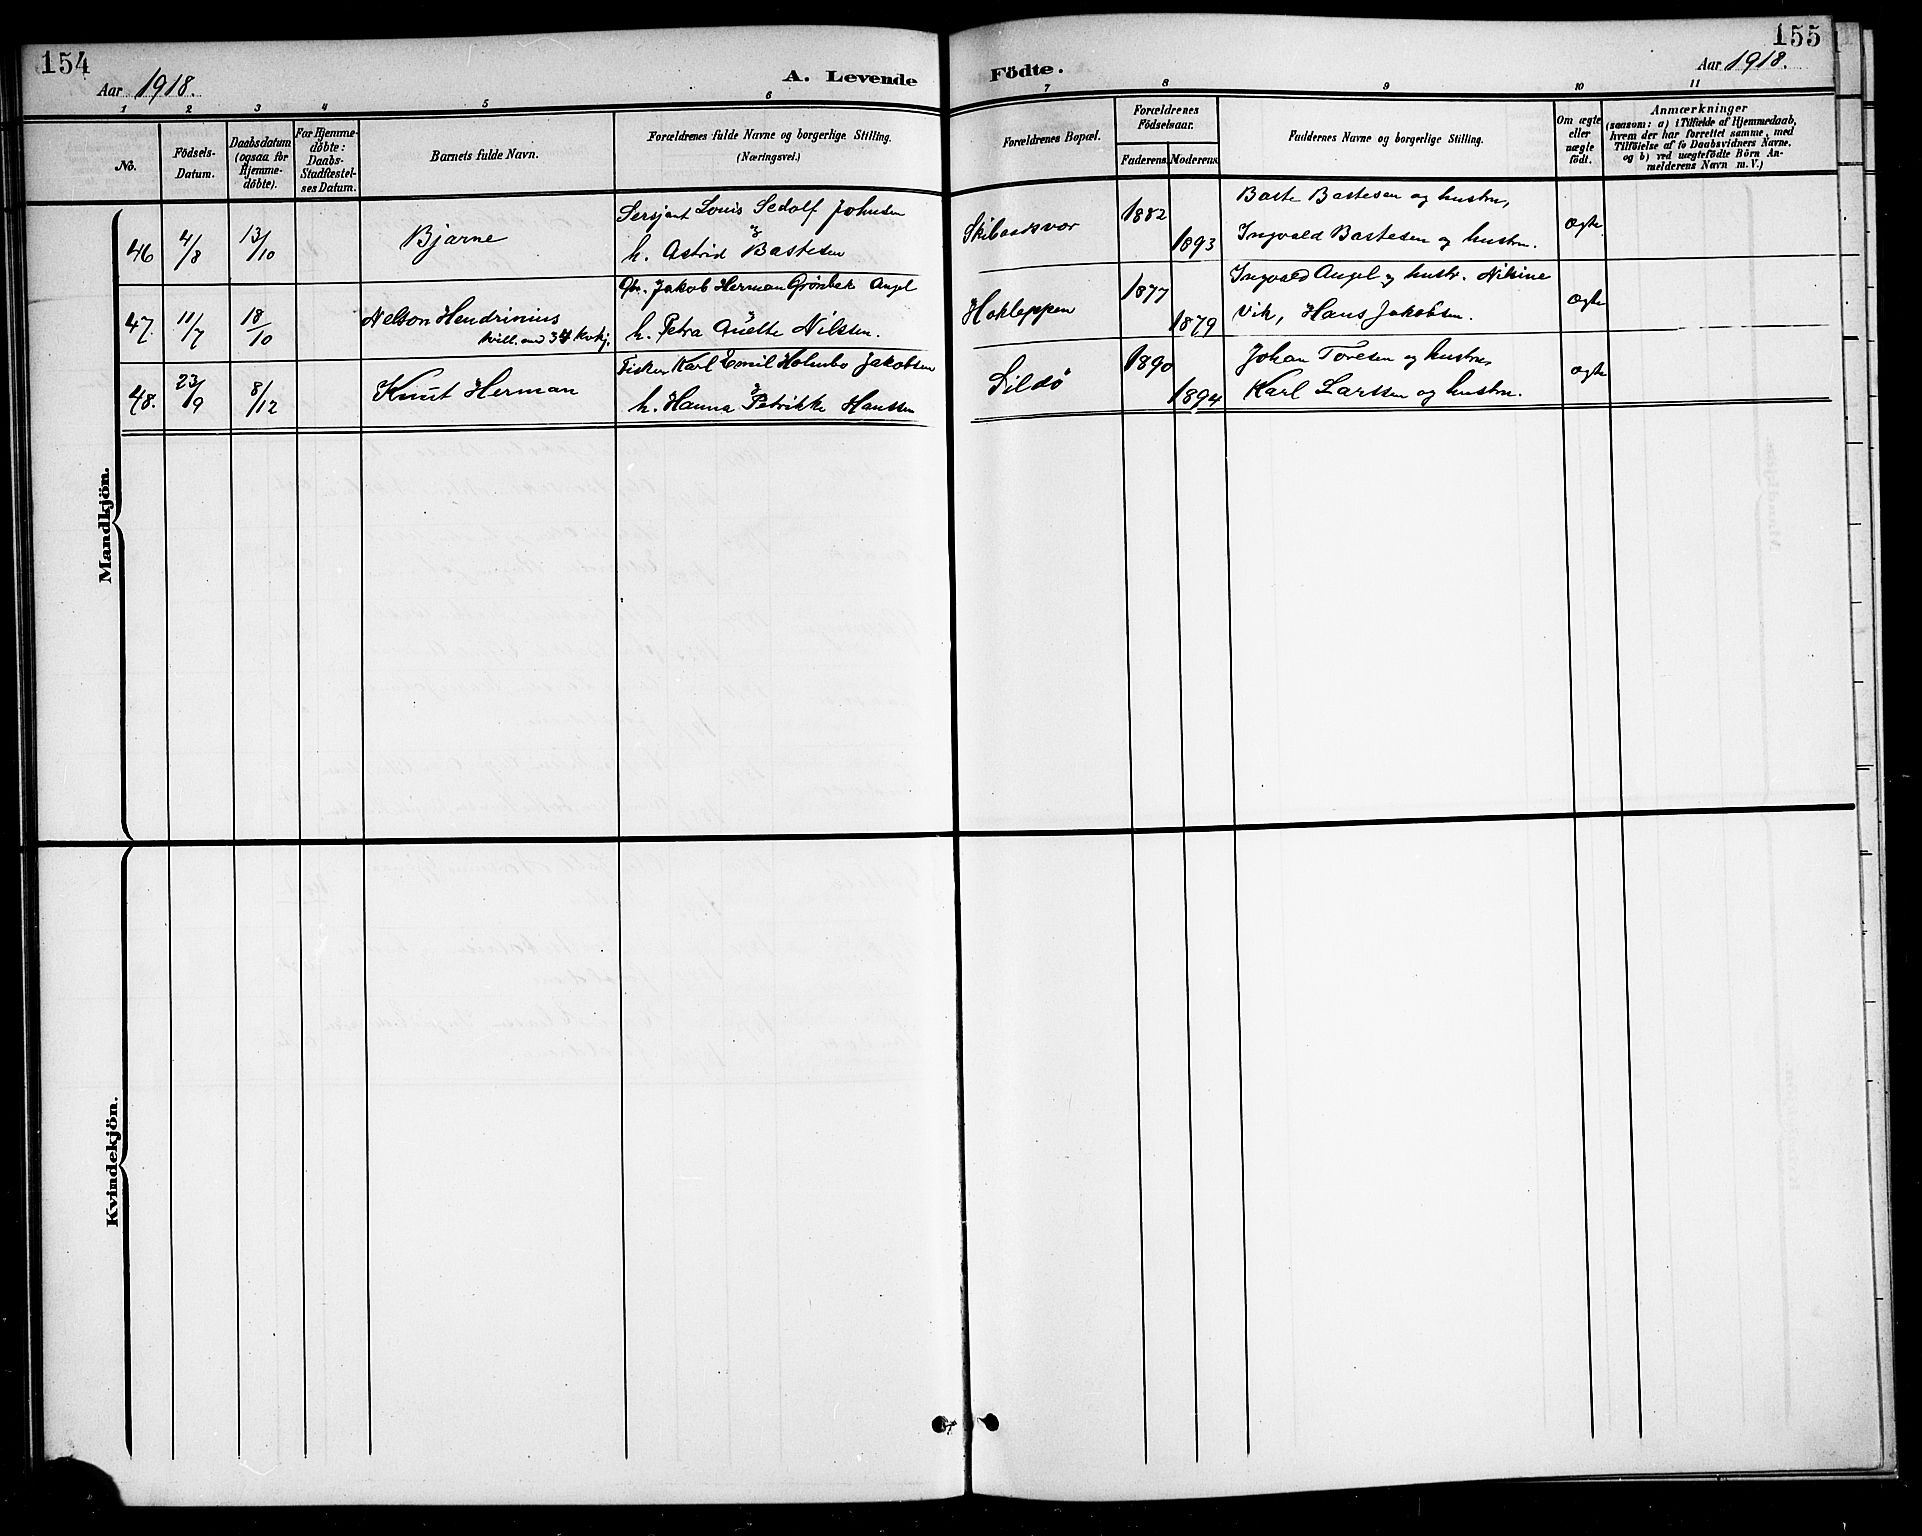 154
Aar 1918.
A. Levende
1 2 3 4 5 6
No.
Födsels-
Datum.
Daabsdatum
(ogsaa for
Hjemme-
döbte).
For Hjemme-
döbte:
Daabs-
Stadfæstel-
ses Datum.
Barnets fulde Navn.
Forældrenes fulde Navne og borgerlige Stilling.
(Næringsvei.)
Mandkjön.
46 4/8 13/10 Bjarne
Sersjant Louis Sedolf Johnsen
og
h. Astrid Bastesen
47. 11/7 18/10 Nelson Hendrinius
Gbr. Jakob Herman Grönbek Angel
h. Petra Anette Nilssen.
48. 23/9 8/12 Knut Herman
Fisker Karl Emil Holmbo Jakobsen
og
h. Hanna Petrikke Hanssen
Kvindekjön.
155
Födte.
Aar 1918.
7 8 9 10 11
Forældrenes Bopæl.
Forældrenes
Födselsaar.
Faderens. Moderens.
Faddernes Navne og borgerlige Stilling.
Om ægte
eller
uægte
födt.
Anmærkninger
(saasom: a) i Tilfælde af Hjemmedaab,
hvem der har forrettet samme, med
Tilföielse af to Daabsvidners Navne.
og b) ved uægtefödte Börn An-
melderens Navn m. V.)
1882 1893
Baste Bastesen og hustru,
Ingvald Bastesen og hustru.
Ægte
Hokleppen 1877 1879
Ingvald Angel og hustr. Nikine
Vik, Hans Jakobsen.
Ægte
Sildö 1890 1894
Johan Toresen og hustru,
Karl Larssen og hustru.
ægte